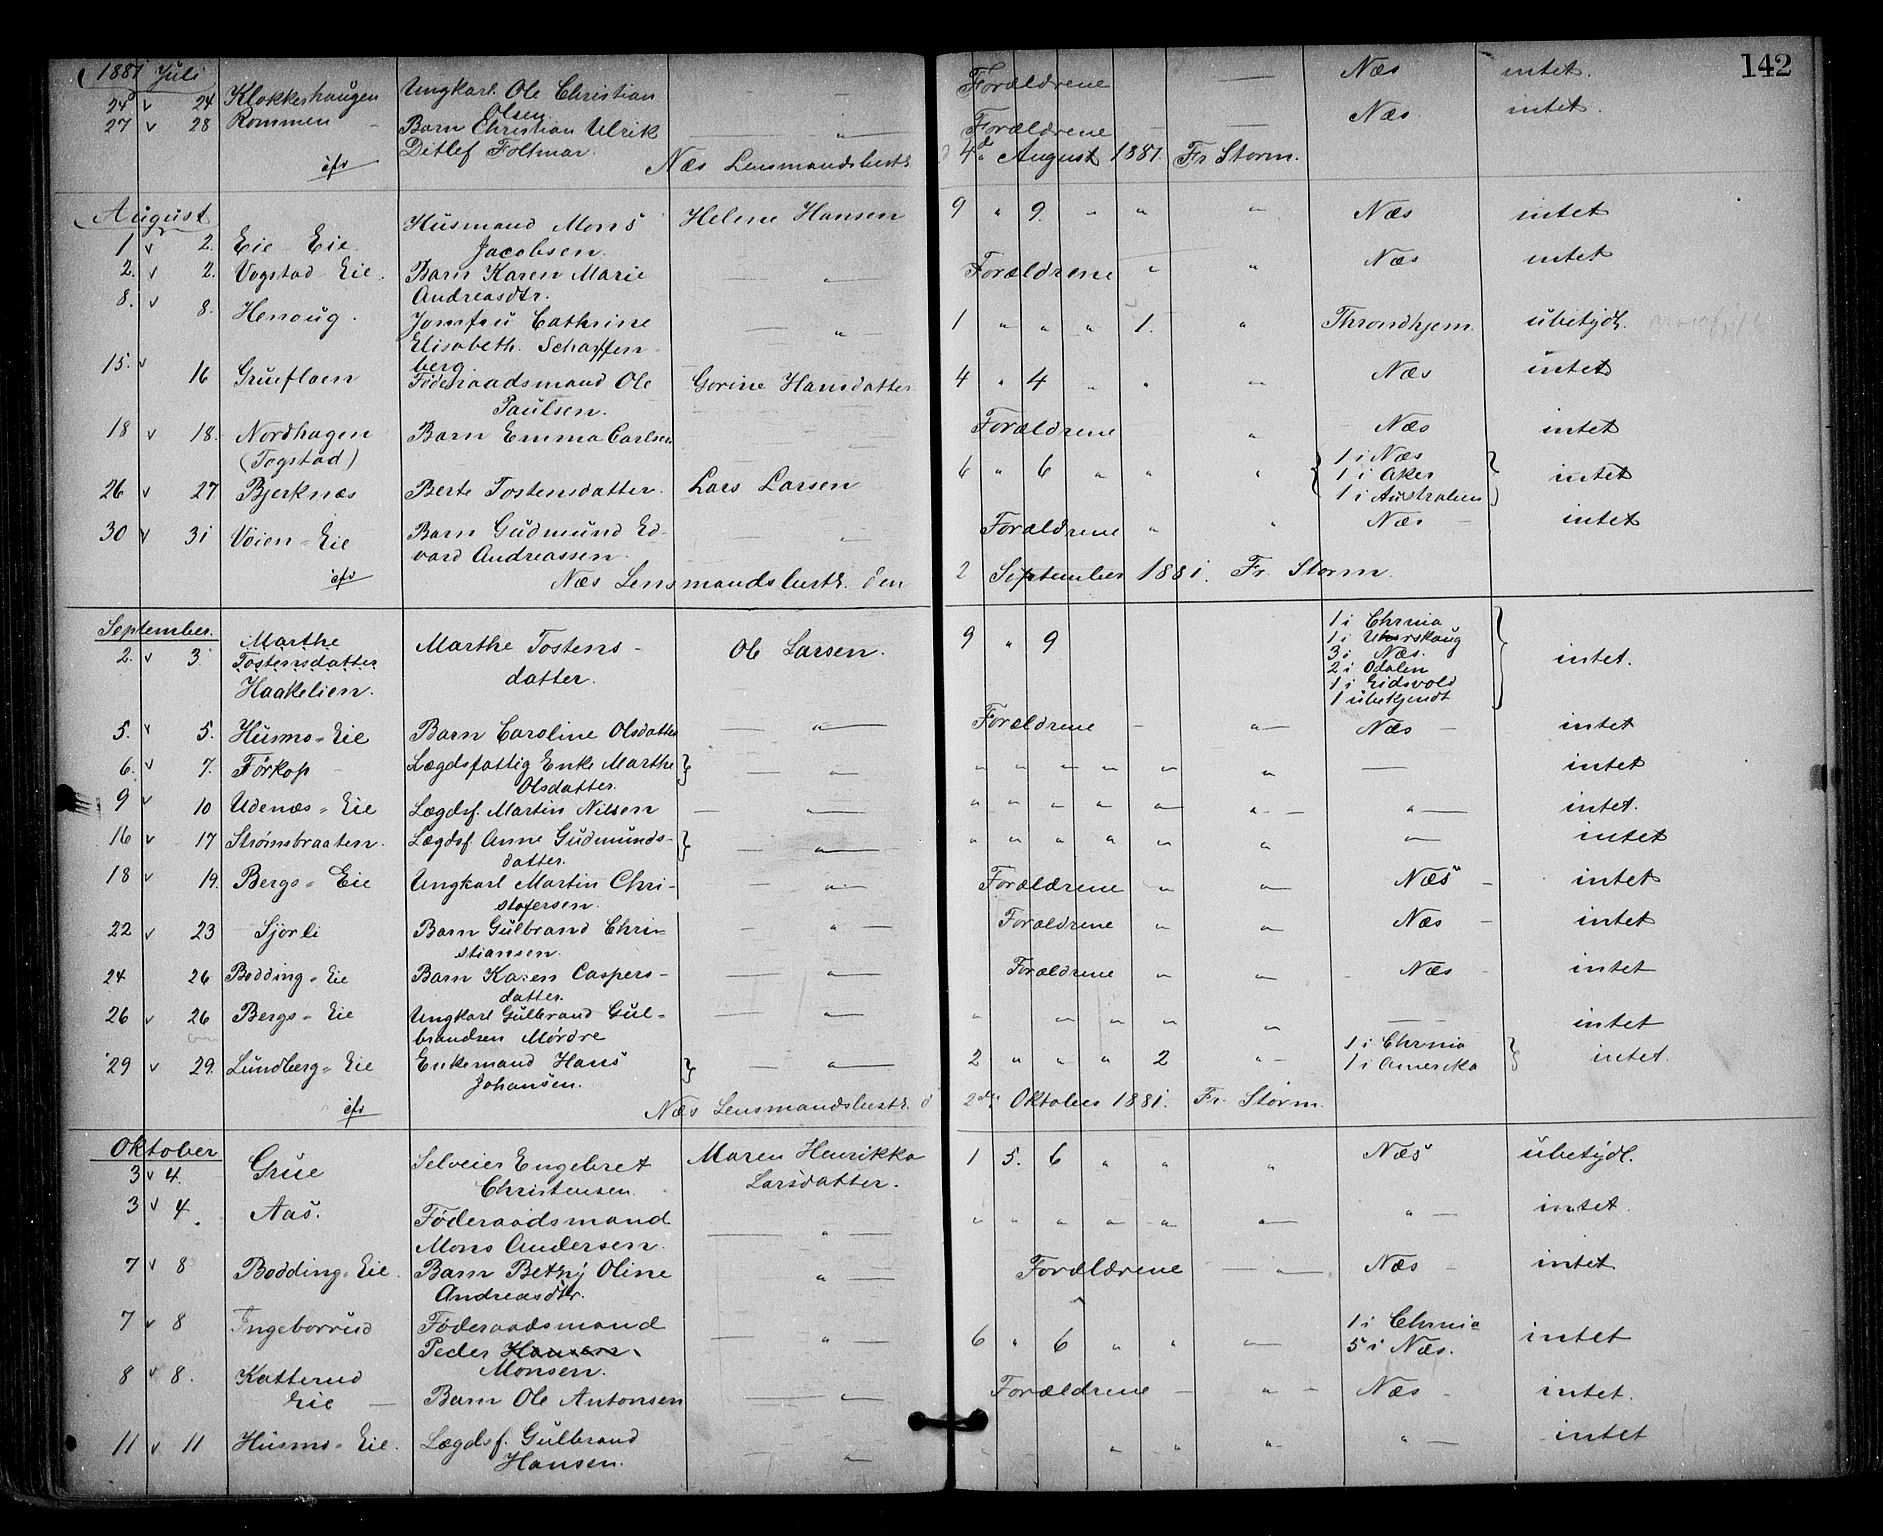 142
1881 Juli
24 v 24 Klokkerhaugen Ungkarl Ole Christian Forældrene — Næs intet.
Olsen
27 v 28 Rommen — Barn Christian Ulrik — " Forældrene — — Næs. intet.
Ditlef Foltmar.
efs Næs Lensmandsbestr. d 4d August 1881. Fr Storm.
August
1 v 2. Eie Eie. Husmand Mons Helene Hansen 9 " 9. " " " Næs intet
Jacobsen.
2. v 2. Vogstad Eie. Barn Karen Marie — " Forældrene " " Næs intet
Andreasdtr.
8. v 8. Henoug. Jomfru Cathrine — " 1 " " " 1. " Throndhjem. ubetydl.
Elisabeth. Scharffen-
berg.
15. v 16 Gruefloen Føderaadsmand Ole Gorine Hansdatter 4 " 4 " " " Næs intet
Paulsen.
18 v 18. Nordhagen Barn Emma Carlsen Forældrene " Næs intet
(Togstad)
1 i Næs
26 v 27 Bjerknæs Berte Tostensdatter. Lars Larsen 6 " 6 " " " { 1 i Aker } intet
1 i Australien
30 v 31 Vøien - Eie Barn Gudmund Ed- — " Forældrene " " Næs — intet
vard Andreassen.
efs Næs Lensmandsbestr. den 2 September 1881. Fr. Storm.
September.
2. v 3. Marthe Marthe Tostens- Ole Larsen. 9 " 9 1 i Chrnia
Tostensdatter datter. 1 i Urskaug
Haakelien. 3 i Næs. intet.
2 i Odalen
1 i Eidsvold
1 ubekjendt
5. v 5. Husmo - Eie Barn Caroline Olsdatter — " — Forældrene — " — Næs — intet
6. v 7. Førkop — Lægdsfattig Enke Marthe } — " — " " " " " " — intet
Olsdatter.
9 v 10 Udenæs - Eie Lægdsf. Martin Nilsen — — " " " " " " — " — intet.
16 v 17 Strømsbraaten. Lægdsf Anne Gudmunds- } — " — " " " " " " " — intet
datter.
18 v 19. Bergs - Eie Ungkarl Martin Chri- — " — Forældrene " " Næs — intet
stofersen.
22 v 23 Sjorli Barn Gulbrand Chri- — " — Forældrene " " Næs — intet
stiansen.
24 26 Bodding - Eie Barn Karen Caspers- — " — Forældrene " " — Næs — intet
datter.
26 v 26 Bergs - Eie Ungkarl Gulbrand Gul- — " — " " " " " — intet
brandsen Mørdre
29 v 29. Lundberg - Eie Enkemand Hans } — " — 2 " " " 2 " 1 i Chrnia } intet.
Johansen. 1 i Amerika
efs Næs Lensmandsbestr. d 2den Oktober 1881. Fr. Storm.
Oktober
3 v 4. Grue Selveier Engebret Maren Henrikka 1 5. 6 " " " Næs ubetydl.
Christensen. Larsdatter.
3 v 4. Aas. Føderaadsmand — " — " " " " " " " — intet.
Mons Andersen.
7 v 8 Bodding - Eie. Barn Bethy Oline " — Forældrene — " — Næs — intet
Andreasdtr.
7 v 8 Ingeborrud Føderaadsmand — " — 6 " 6 " " " 1 i Chrnia intet
Peder Hansen. 5 i Næs.
Monsen.
8 v 8. Katterud
Eie — Barn Ole Antonsen — " — Forældrene — " — Næs — intet.
11 v 11 Husmo - Eie. Lægdsf. Gulbrand " " " " " — intet
Hansen.